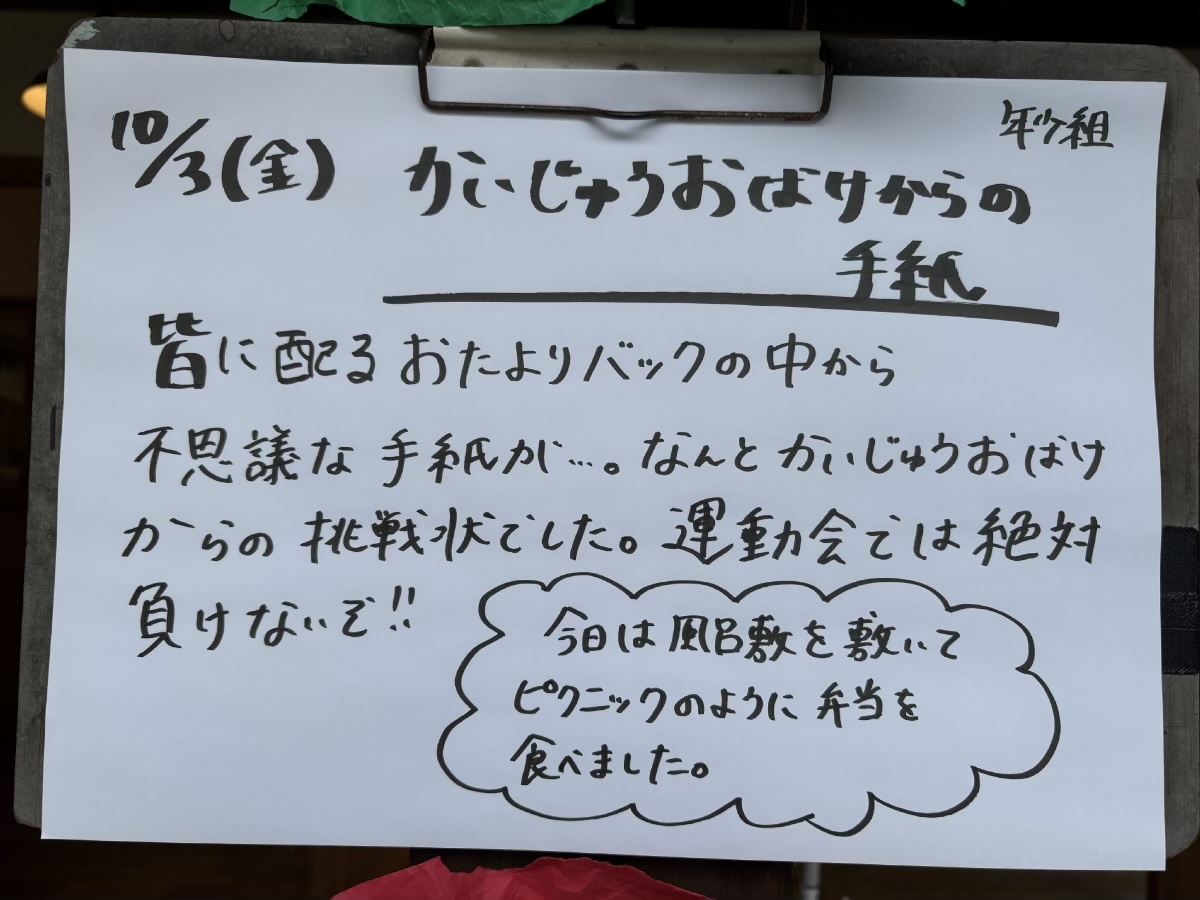 年少組
10/3(金) かいじゅうおばけからの
手紙
皆に配るおたよりバックの中から
不思議な手紙が…。なんとかいじゅうおばけ
からの挑戦状でした。運動会では絶対
負けないぞ!!
今日は風呂敷を敷いて
ピクニックのように弁当を
食べました。